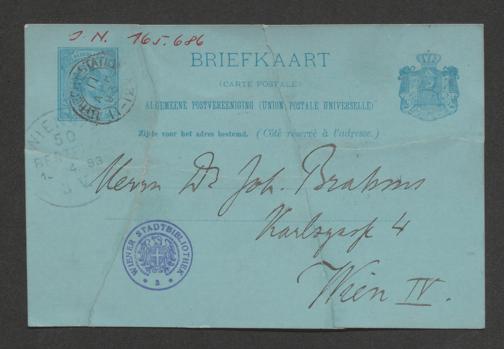 J. N. 165.686
BRIEFKAART
(CARTE POSTALE)
ALGEMEENE POSTVEREENIGING (UNION POSTALE UNIVERSELLE)
Zijde voor het adres bestemd. (Côté réservé à l'adresse.)
WIEN
50
Herrn Dr Joh. Brahms
Karlsgasse 4
WIENER STADTBIBLIOTHEK
Wien IV.